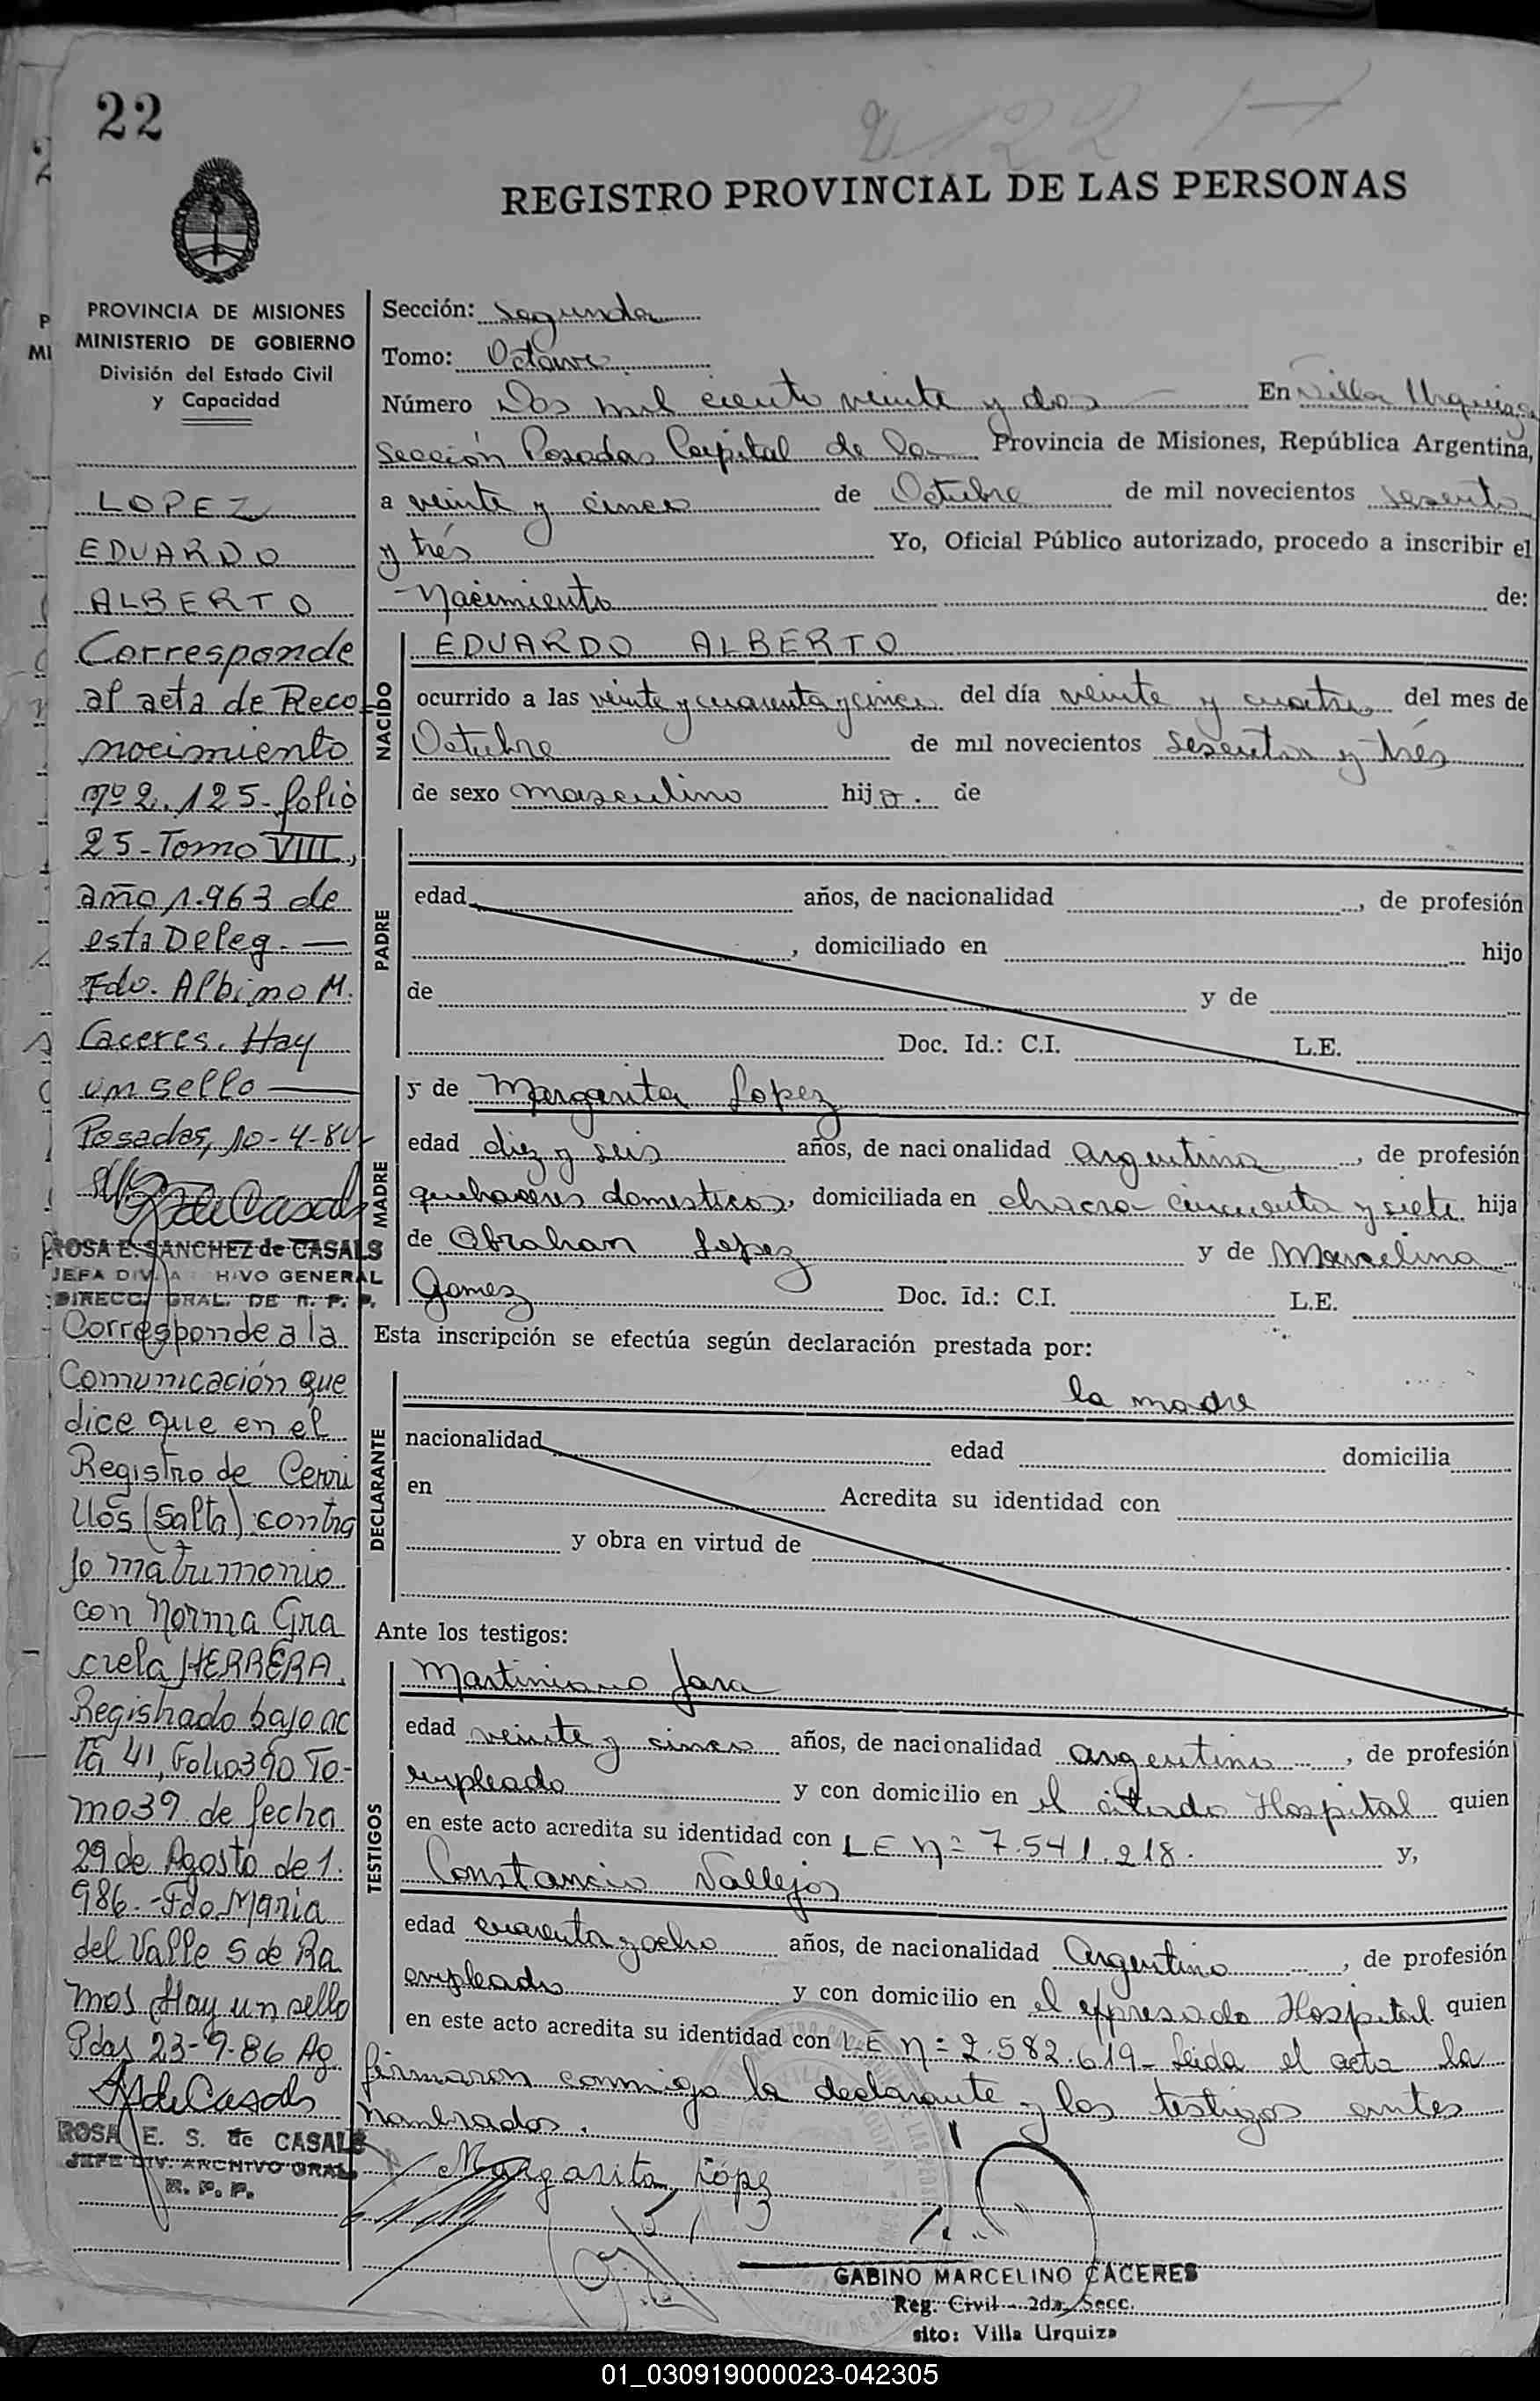 22
2122
REGISTRO PROVINCIAL DE LAS PERSONAS
PROVINCIA DE MISIONES
MINISTERIO DE GOBIERNO
División del Estado Civil
y Capacidad
LOPEZ
EDUARDO
ALBERTO
Corresponde
al acta de Reco
nocimiento
nº 2.125-folio
25-Tomo VIII,
año 1.963 de
esta Deleg.—
Fdo. Albino M.
Caceres. Hay
un sello—
Posadas, 10-4-84
de Casals
ROSA E. SANCHEZ de CASALS
JEFA DIV. A HIVO GENERAL
DIRECC. GRAL. DE R. P. P.
Corresponde a la
Comunicación que
dice que en el
Registro de Cerri
llos (Salta) contra
jo matrimonio
con Norma Gra
ciela HERRERA.
Registrado bajo ac
ta 41, Folio 390 To-
mo 39 de fecha
29 de Agosto de 1.
986.-Fdo. Maria
del Valle S de Ra
mos Hay un sello
Pdas 23-9-86 Ag.
de Casals
ROSA E. S. de CASALS
JEFE DIV. ARCHIVO GRAL.
R. P. P.
Sección: Segunda
Tomo: Octavo
Número Dos mil ciento veinte y dos — En Villa Urquiza
Sección Posadas Capital de la Provincia de Misiones, República Argentina,
a veinte y cinco de Octubre de mil novecientos sesenta
y trés Yo, Oficial Público autorizado, procedo a inscribir el
Nacimiento de:
NACIDO
EDUARDO ALBERTO
ocurrido a las veinte y cuarenta y cinco del día veinte y cuatro del mes de
Octubre de mil novecientos sesenta y trés
de sexo masculino hijo. de
PADRE
edad años, de nacionalidad , de profesión
, domiciliado en hijo
de y de
Doc. Id.: C.I. L.E.
MADRE
y de Margarita Lopez
edad diez y seis años, de nacionalidad argentina, de profesión
quehaceres domesticos, domiciliada en chacra cincuenta y siete hija
de Abraham Lopez y de Marcelina
Gomez Doc. Id.: C.I. L.E.
Esta inscripción se efectúa según declaración prestada por:
DECLARANTE
la madre
nacionalidad edad domicilia
en Acredita su identidad con
y obra en virtud de
Ante los testigos:
TESTIGOS
Martiniano Jara
edad veinte y cinco años, de nacionalidad argentino, de profesión
empleado y con domicilio en el citado Hospital quien
en este acto acredita su identidad con LE Nº 7.541.218. y,
Constancio Vallejos
edad cuarenta y ocho años, de nacionalidad Argentino, de profesión
empleado y con domicilio en el expresado Hospital quien
en este acto acredita su identidad con LE Nº 2.582.619- Leida el acta la
firmaron conmigo la declarante y los testigos antes
nombrados.
Margarita Lópz
GABINO MARCELINO CACERES
Reg. Civil - 2da. Secc.
sito: Villa Urquiza
01_030919000023-042305